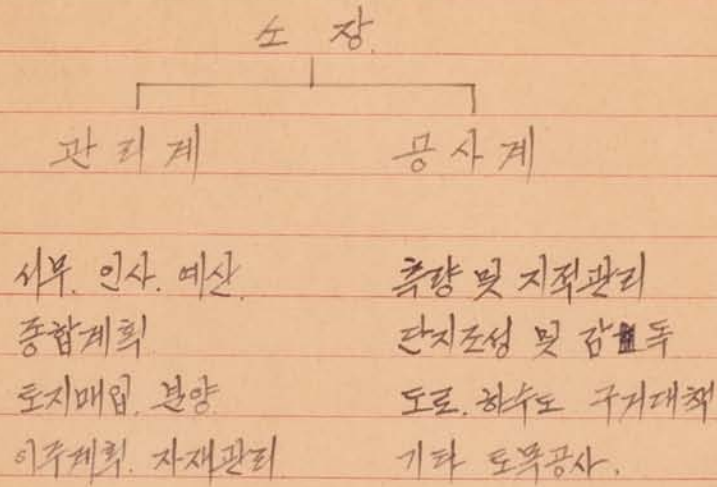 소 장.
관리계
공사계
서무. 인사. 예산.
종합계획
토지매입. 분양
이주계획. 자재관리
측량 및 지적관리
단지조성 및 감독
도로. 하수도 구거대책
기타 토목공사.